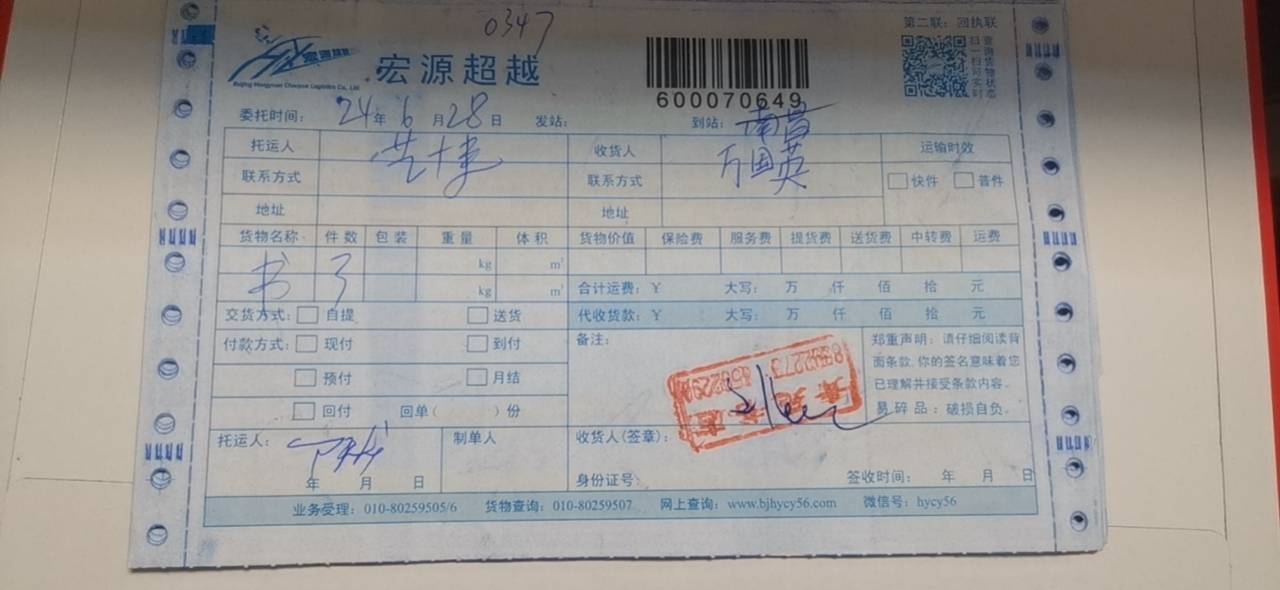 0347
第二联：回执联
扫一扫可实时
查询货物状态
宏源超越
Beijing Hongyuan Chaoyue Logistics Co., Ltd
600070649
委托时间： 24年 6月 28日 发站： 到站：南昌
托运人 收货人 万国英 运输时效
联系方式 联系方式 快件 普件
地址 地址
货物名称 件数 包装 重量 体积 货物价值 保险费 服务费 提货费 送货费 中转费 运费
kg m³
书 3 kg m³ 合计运费：￥ 大写： 万 仟 佰 拾 元
交货方式： 自提 送货 代收货款：￥ 大写： 万 仟 佰 拾 元
付款方式： 现付 到付 备注：
预付 月结
回付 回单（ ）份
郑重声明：请仔细阅读背
面条款，你的签名意味着您
已理解并接受条款内容。
易碎品：破损自负。
托运人： 制单人 收货人(签章)：
年 月 日 身份证号： 签收时间： 年 月 日
业务受理：010-80259505/6 货物查询：010-80259507 网上查询：www.bjhycy56.com 微信号：hycy56